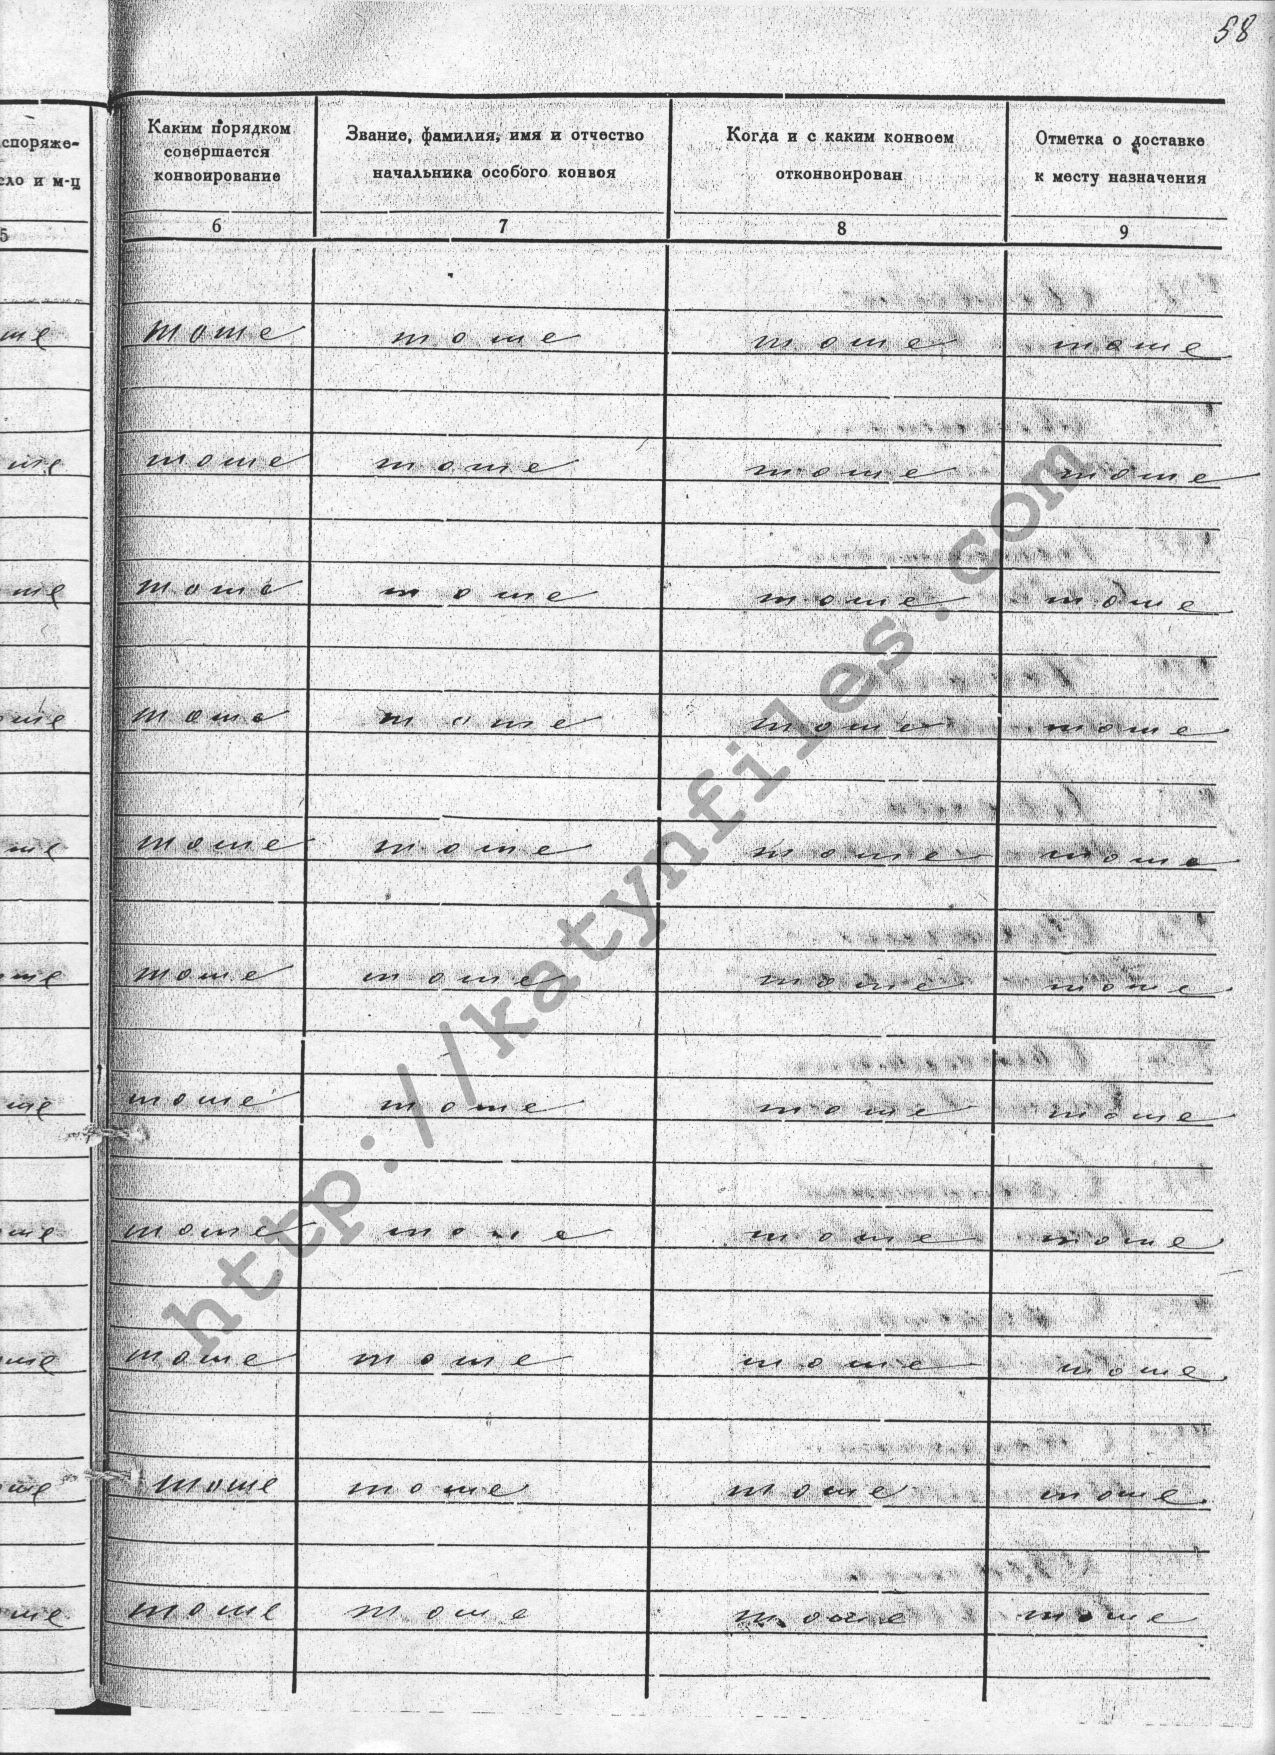 58
споряже-
сло и м-ц
5
Каким порядком
совершается
конвоирование
6
Звание, фамилия, имя и отчество
начальника особого конвоя
7
Когда и с каким конвоем
отконвоирован
8
Отметка о доставке
к месту назначения
9
тоже тоже тоже тоже
тоже тоже тоже тоже
тоже тоже тоже тоже
тоже тоже тоже тоже
тоже тоже тоже тоже
тоже тоже тоже тоже
тоже тоже тоже тоже
тоже тоже тоже тоже
тоже тоже тоже тоже
тоже тоже тоже тоже
тоже тоже тоже тоже
http://katynfiles.com